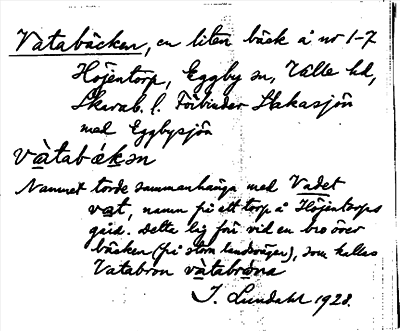 Vatabäcken, en liten bäck å nr 1-7
Höjentorp, Eggby sn, Valle hd,
Skarab. l. Förbinder Stakasjön
med Eggbysjön
vàtabákən
Namnet torde sammanhänga med Vadet
vat, namn på ett torp å Höjentorps
gård. Detta låg förr vid en bro över
bäcken (på stora landsvägen), som kallas
Vatabron vàtabròna
J. Lundahl 1928.